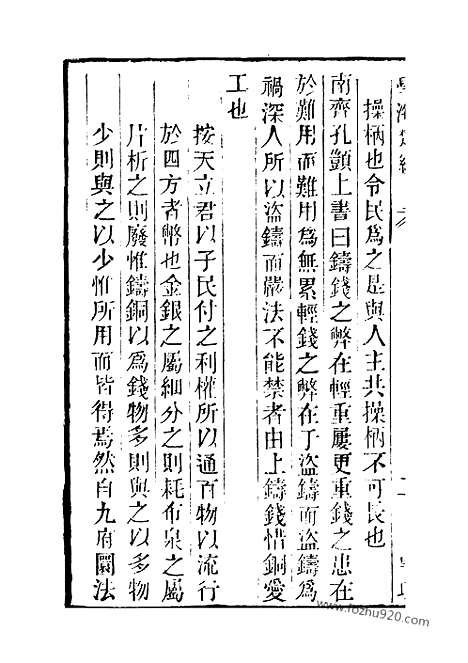 操柄也令民爲之是與人主共操柄不可長也
南齊孔顗上書曰鑄錢之弊在輕重屢更重錢之患在
於難用而難用爲無累輕錢之弊在于盜鑄而盜鑄爲
禍深人所以盜鑄而嚴法不能禁者由上鑄錢惜銅愛
工也
按天立君以子民付之利權所以通百物以流行
於四方者幣也金銀之屬細分之則耗布泉之屬
片析之則廢惟鑄銅以爲錢物多則與之以多物
少則與之以少惟所用而皆得焉然自九府圜法
www.fozhu920.com